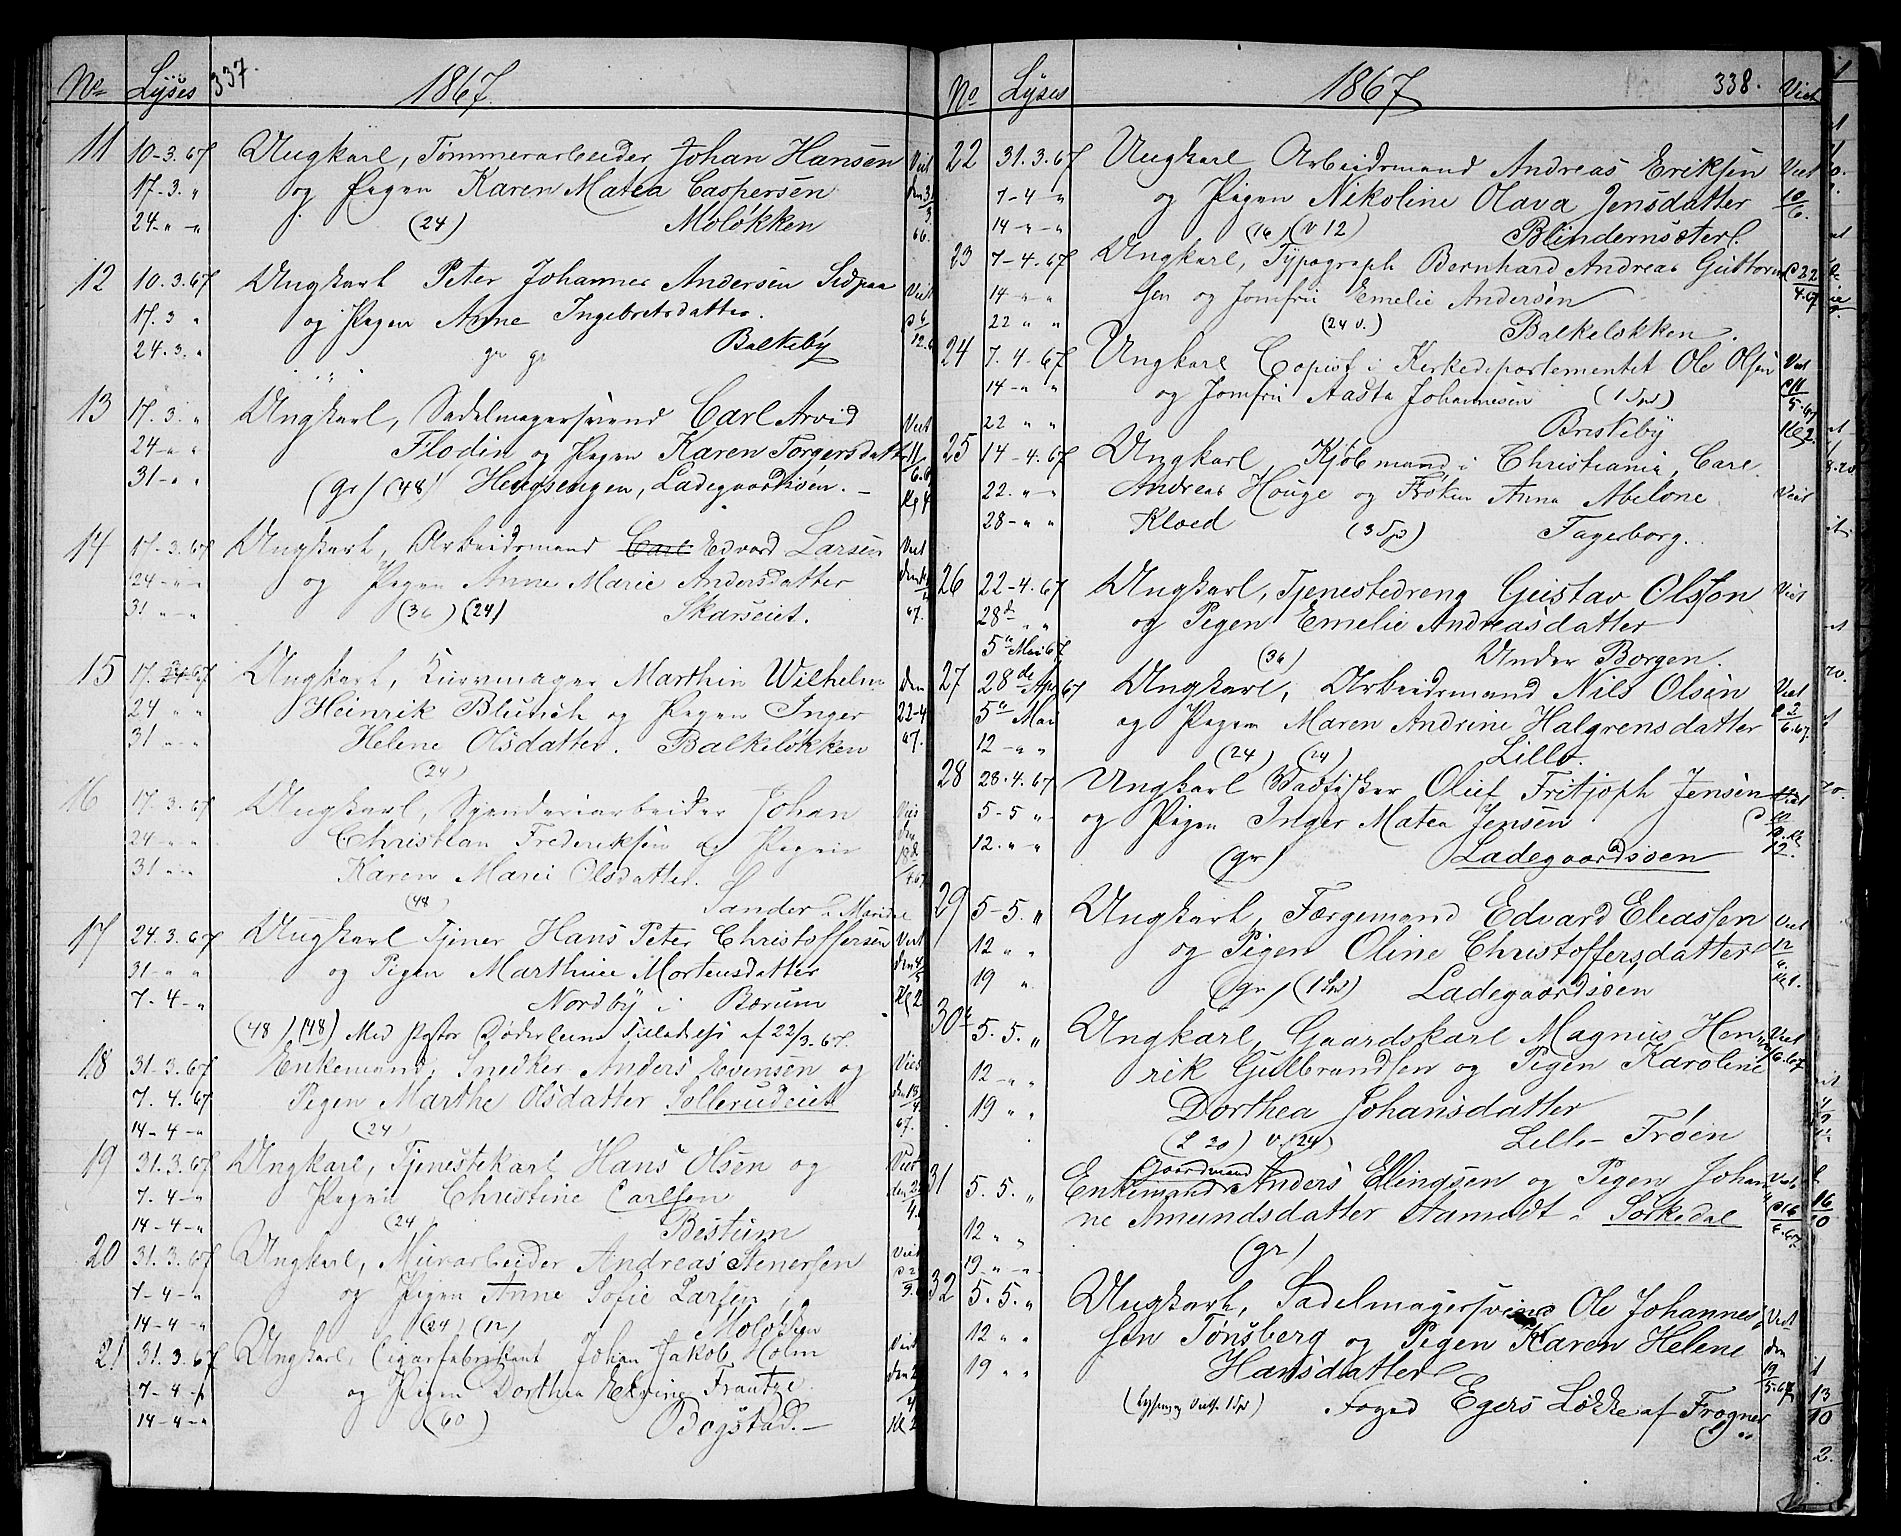 No Lyses 337. 1867.
11 10-3.67 Ungkarl, Tømmerarbeider Johan Hansen Viet
17-3. " og Pigen Karen Matea Caspersen den 3
24-"-" (24) Moløkken 66.
12 10.3.67 Ungkarl Peter Johannes Andersen Viet
17.3 " og Pigen Anne Ingebretsdatter.
24.3. " gr gr Balkeby
13 17.3. " Ungkarl, Sadelmagersvend Carl Arvid Viet
24-" " Flodin og Pigen Karen Torgersdatter 11
31-" " (gr) (48) Hengsengen, Ladegaardsøen.
14 17-3.67 Ungkarl, Arbeidsmand Carl Edvard Larsen Viet
24-"-" og Pigen Anne Marie Andersdatter den
31 "-" (36) (24) Skarseiet. 67.
15 17. 3.67 Ungkarl, Kurvmager Marthin Wilhelm den
24 " " Heinrik Blutich og Pigen Inger 22-4
31 "-" Helene Olsdatter. Balkeløkken 67.
(24)
16 17.3.67 Ungkarl, Spinderiarbeider Johan
24-" " Christian Frederiksen og Pigen
31 "-" Karen Marie Olsdatter.
(48) Sander i
17 24.3.67 Ungkarl Tjener Hans Peter Christoffersen Viet
31-" " og Pigen Marthine Mortensdatter
7-4-" Nordby i Bærum
(48) (48) Med Pastor Tilladelse af 22/3.67.
18 31-3.67 Enkemand, Snedker Anders Evensen og Viet
7.4.67 Pigen Marthe Olsdatter Sollerudeiet
14-4-" (24) 67.
19 31.3.67 Ungkarl, Tjenestekarl Hans Olsen og Viet
7.4-" Pigen Christine Carlsen
14-4-" (24 Bestum
20 31.3.67 Ungkarl, Murarbeider Andreas Stenersen Viet
7-4-" og Pigen Anne Sofie Larsen
14-4-" (24) (12) Moløkken
21 31.3.67 Ungkarl, Cigarfabrikant Johan Jakob Holm Viet
7-4-" og Pigen Dorthea Frantze
14-4-" (60)
No Lyses 1867 338. Viet
22 31.3.67 Ungkarl Arbeidsmand Andreas Eriksen Viet
7-4-" og Pigen Nikoline Olava Jensdatter 10/6.
14 "-" (16) (v 12) Blindernsæter.
23 7-4.67 Ungkarl, Typograph Bernhard Andreas Guttorm
14-" " sen og Jomfru Emelie Andersen
22 " " (24 v.) Balkeløkken.
24 7.4.67 Ungkarl Copist i Kirkedepartementet Ole Olsen Viet
14-" " og Jomfru Aasta Johannesen (1 Spd)
22 " " Briskeby
25 14-4.67 Ungkarl, Kjøbmand i Christiania, Carl
22. "-" Andreas Houge og Frøken Anna Abelone Viet
28-" " Kloed (3 Spd) Fagerborg.
26 22-4.67 Ungkarl, Tjenestedreng Gustav Olsson Viet
28d " " og Pigen Emelie Andreasdatter
5 Mai 67 (36) Under Borgen.
27 28de Apr 67 Ungkarl, Arbeidsmand Nils Olsen Viet
5 Mai og Pigen Maren Andrine Halgrensdatter 2/6.67.
12-" " (24) Lillo.
28 28.4.67 Ungkarl Olief Fritjoph Jensen Viet
5-5 " og Pigen Inger Matea Jensen
12. " " (gr) Ladegaardsøen
29 5-5. " Ungkarl, Færgemand Edvard Eleassen Viet
12 " " og Pigen Oline Christoffersdatter 12
19 " (gr) (1 Spd) Ladegaardsøen
30 5.5. " Ungkarl, Gaardskarl Magnus Hen- Viet
12-" " rik Gulbrandsen og Pigen Karoline
19 " " Dorthea Johansdatter
Lille-Frøen
31 5.5. " Enkemand Gaardmand Anders Ellingsen og Pigen Johan- Viet
12 " " ne Amundsdatter Aamodt i Sørkedal
19-"-" (gr)
32 5.5. " Ungkarl, Sadelmagersvend Ole Johannes- Viet
12 " " sen Tønsberg og Pigen Karen Helene den
19 " " Hansdatter 19/5.67
Foged Egers Løkke af Frogner